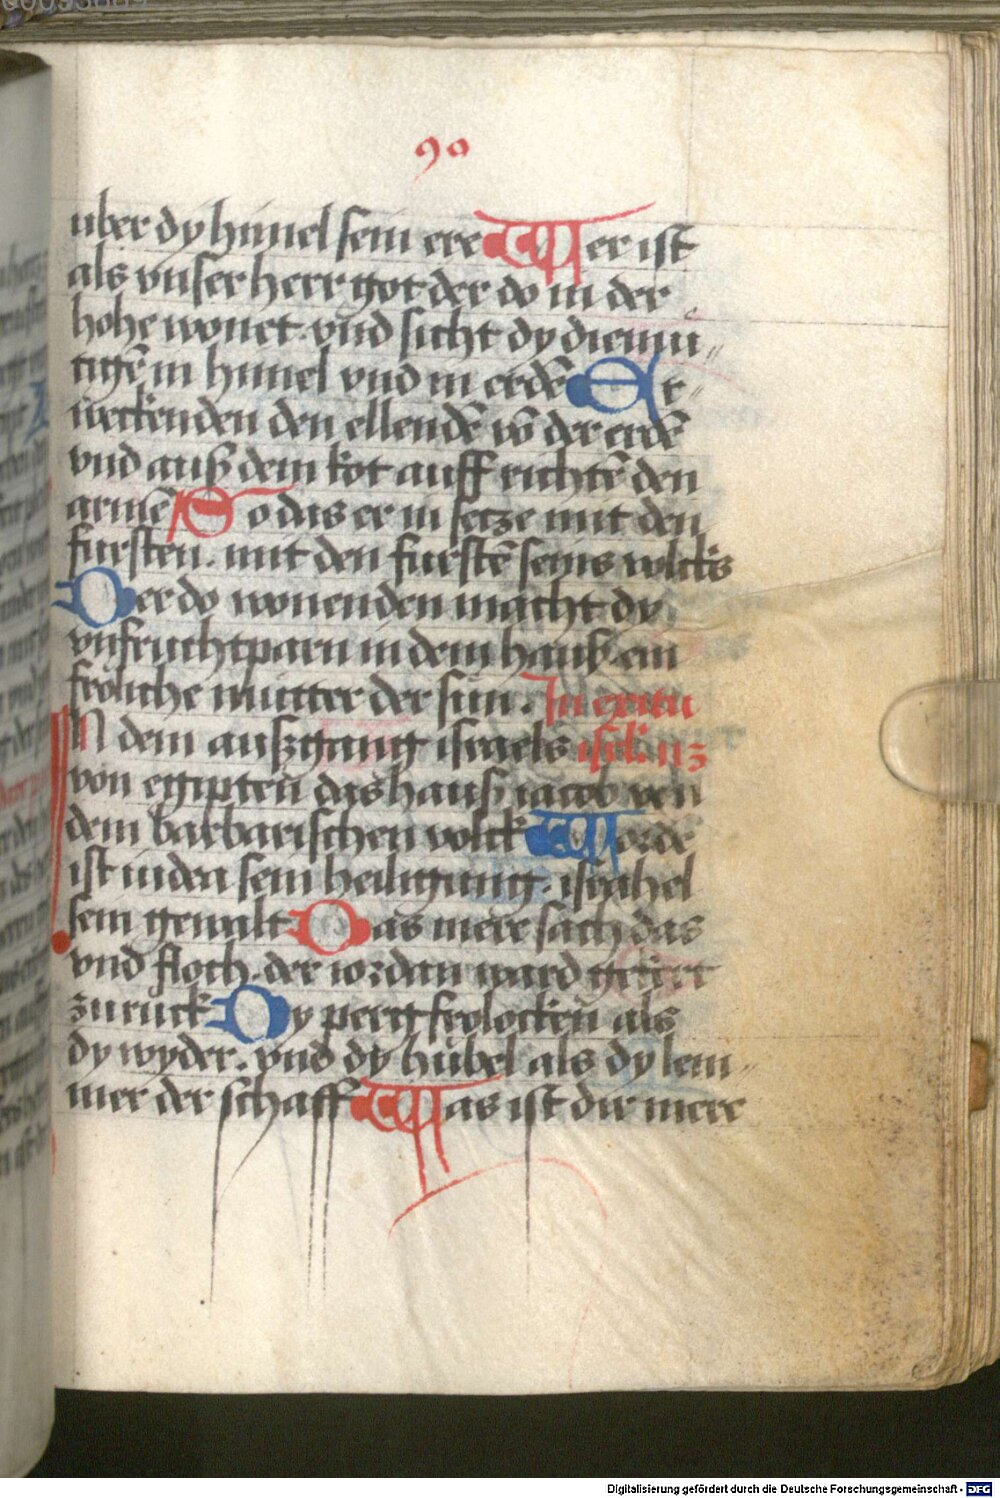 90
uber dy himel sein ere Wer ist
als vnser herr got der do in der
hohe wonet. vnd sicht dy diemu〃
tigē in himel vnd in erdē Er〃
weckenden den ellendē vō der erdē
vnd auß dem kot auff richtē den
armē So das er in secze mit den
fursten. mit den furstē seins volcks
Der do wonenden macht dy
vnfruchtparn in dem hauß. ein
froliche mutter der sun. In exitu
IN dem außgang israels isrl. 113
von egipten das hauß iacob von
dem barbarischen volck Worde
ist iudea sein heiligung. israhel
sein gewalt Das mere sach das
vnd floch. der iordan ward gekert
zuruck Dy perg frolocken als
dy wyder. vnd dy hubel als dy lem〃
mer der schaff Was ist dir mere
Digitalisierung gefördert durch die Deutsche Forschungsgemeinschaft - DFG